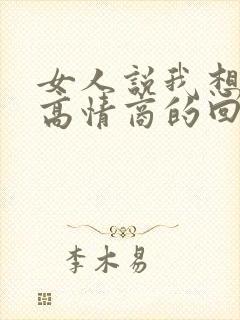 女人説我想
高情商的回
李木易